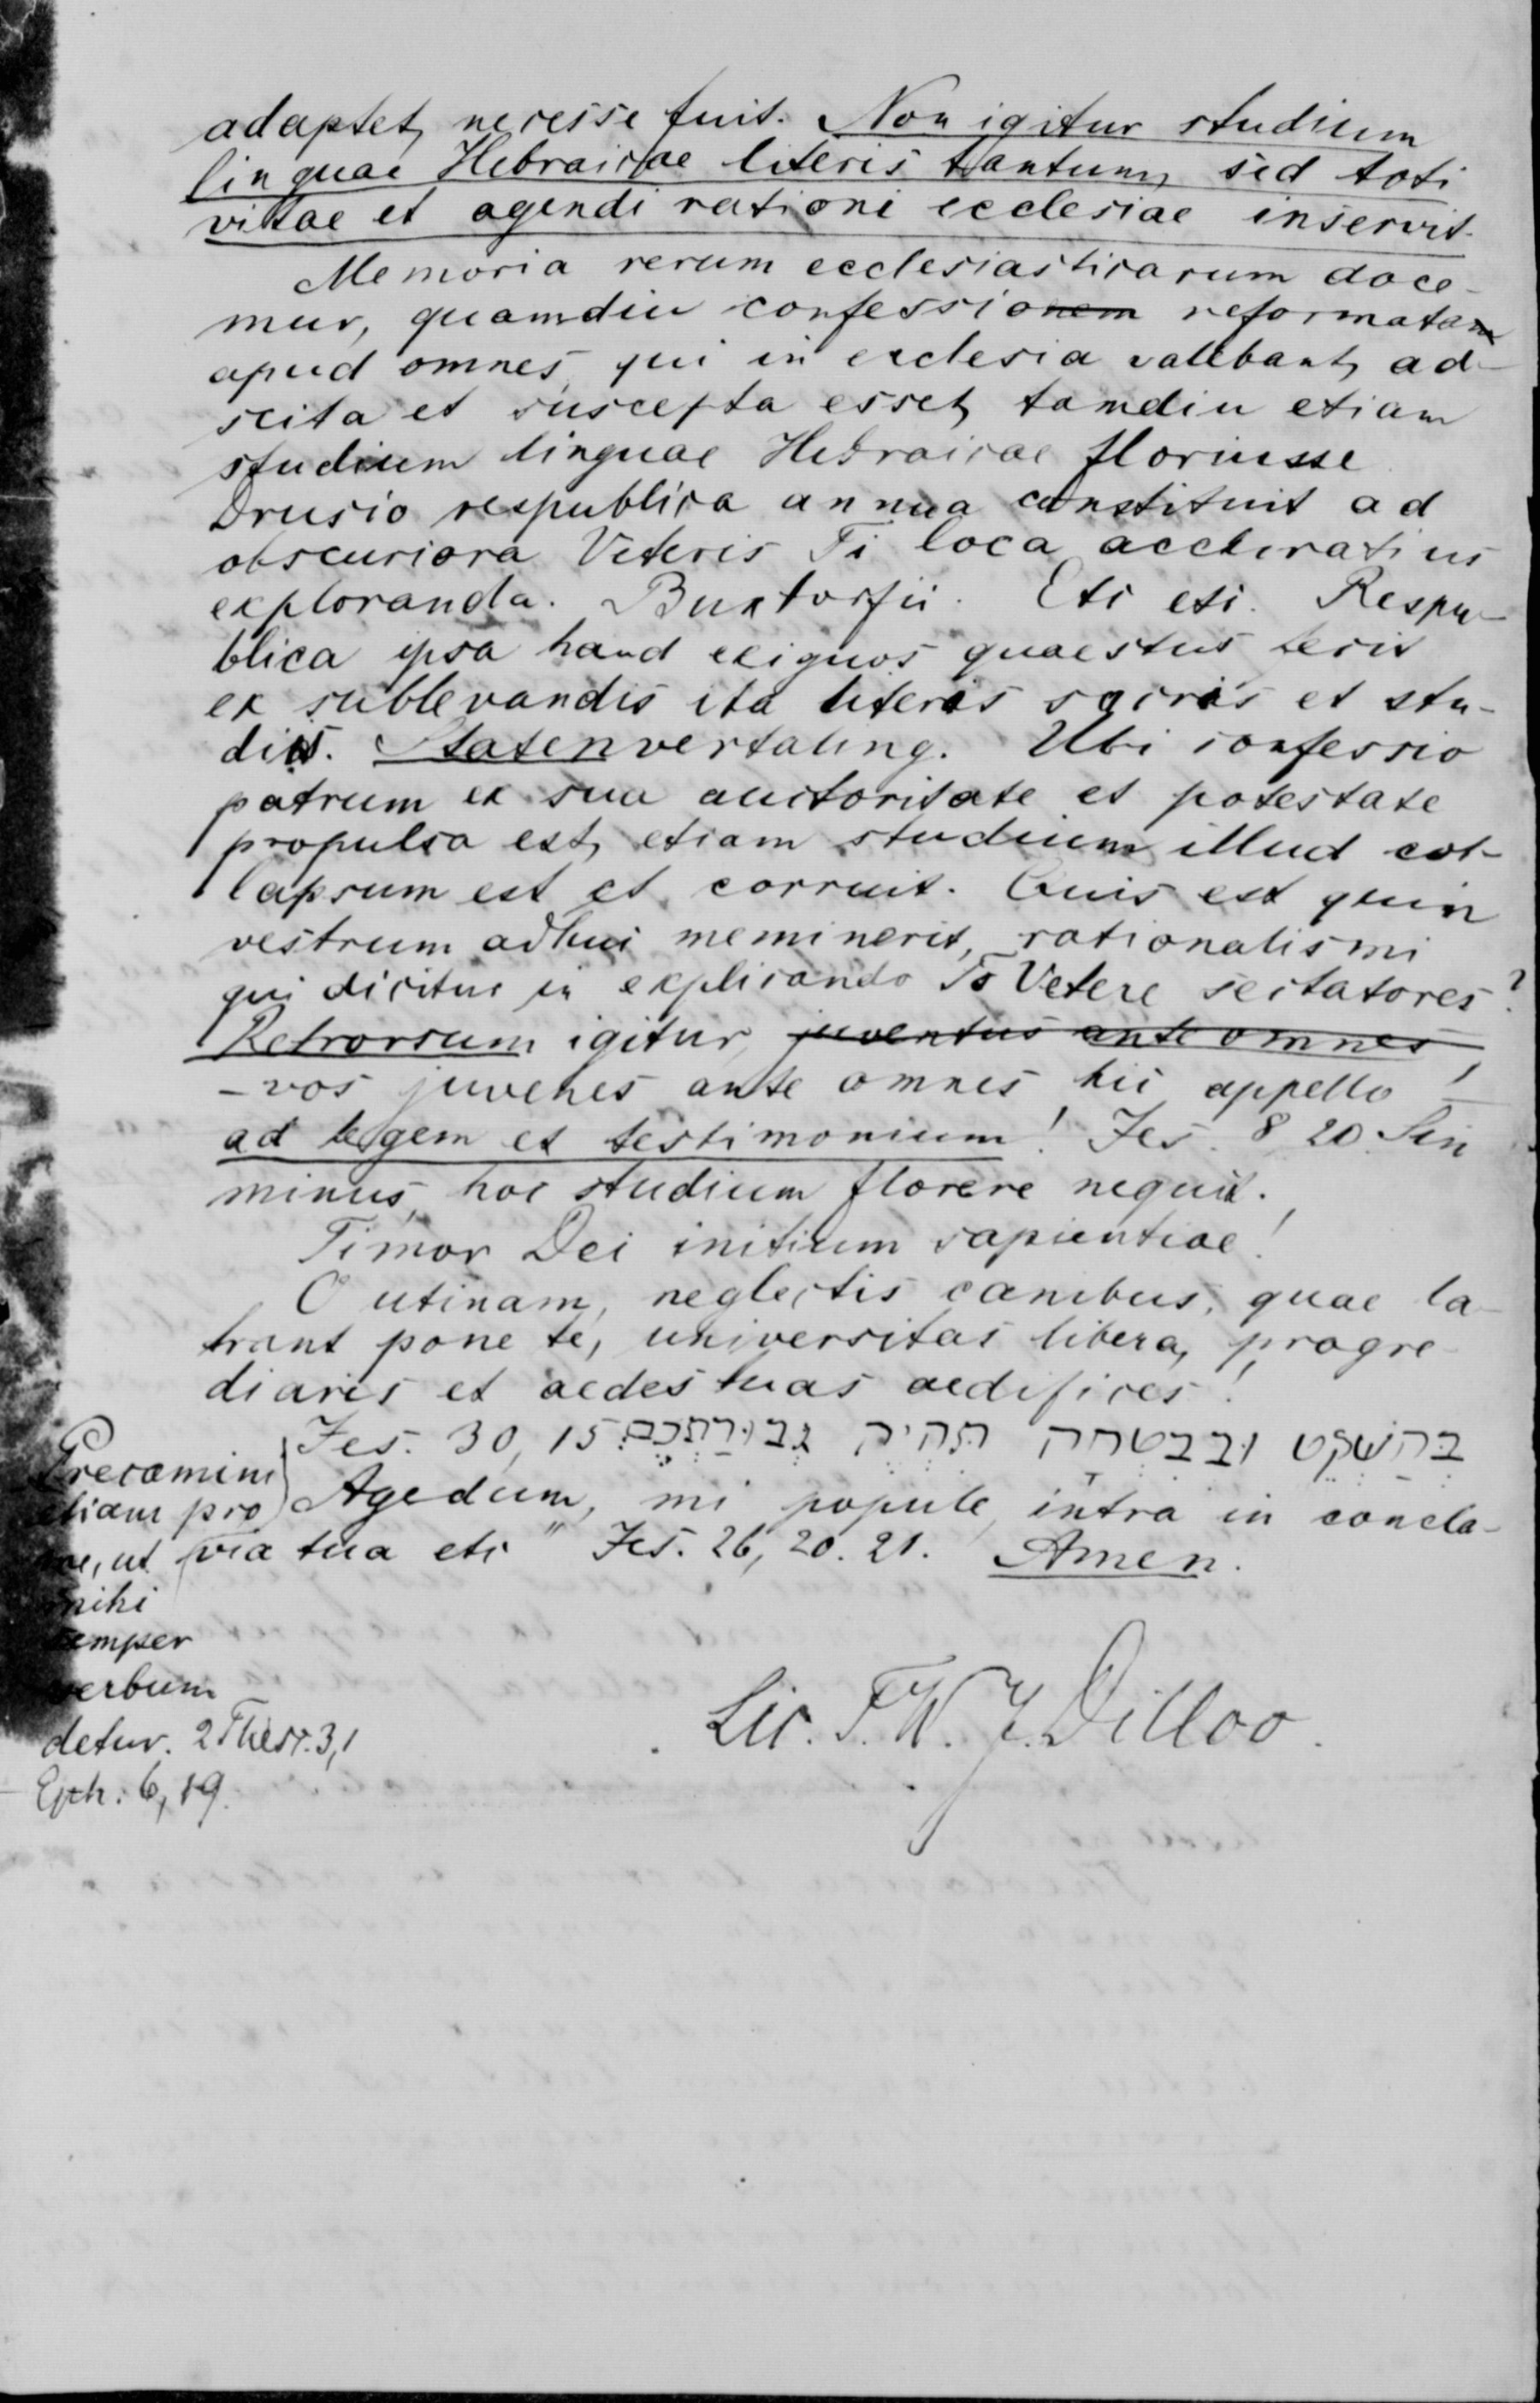 adaptet, necesse fuit. Non igitur studium
linguae Hebraicae literis tantum, sed toti
vitae et agendi rationi ecclesiae inservit.
Memoria rerum ecclesiasticarum doce-
mur, quamdiu confessionem reformatam
apud omnes, qui in ecclesia valebant, ad-
scita et suscepta esset, tamdiu etiam
studium linguae Hebraicae floruisse.
Drusio respublica annua constituit ad
obscuriora Veteris Ti loca accuratius
exploranda. Buxtorfii. Etc etc. Respu-
blica ipsa haud exiguos quaestus fecit
ex sublevandis ita literis sacris et stu-
diis. Statenvertaling. Ubi confessio
patrum ex sua auctoritate et potestate
propulsa est, etiam studium illud col-
lapsum est et corruit. Quis est quin
vestrum adhuc meminerit, rationalismi
qui dicitur in explicando To Vetere sectatores?
Retrorsum igitur, juventus ante omnes,
– vos juvenes ante omnes hic appello –
ad legem et testimonium! Jes. 8 20. Sin
minus, hoc studium florere nequit.
Timor Dei initium sapientiae!
O utinam, neglectis canibus, quae la-
trant pone te, universitas libera, progre-
diaris et aedes tuas aedifices!
Jes. 30, 15 בְּהַשְׁקֵט וּבְבִטְחָה תִּהְיֶה גְּבוּרַתְכֶם׃
Agedum, mi popule, intra in concla-
via tua etc" Jes. 26, 20. 21. Amen.
Precamini
etiam pro
me, ut
mihi
semper
verbum
detur. 2 Thess. 3,1
Eph. 6, 19.
Lic. F. W. J. Dilloo.